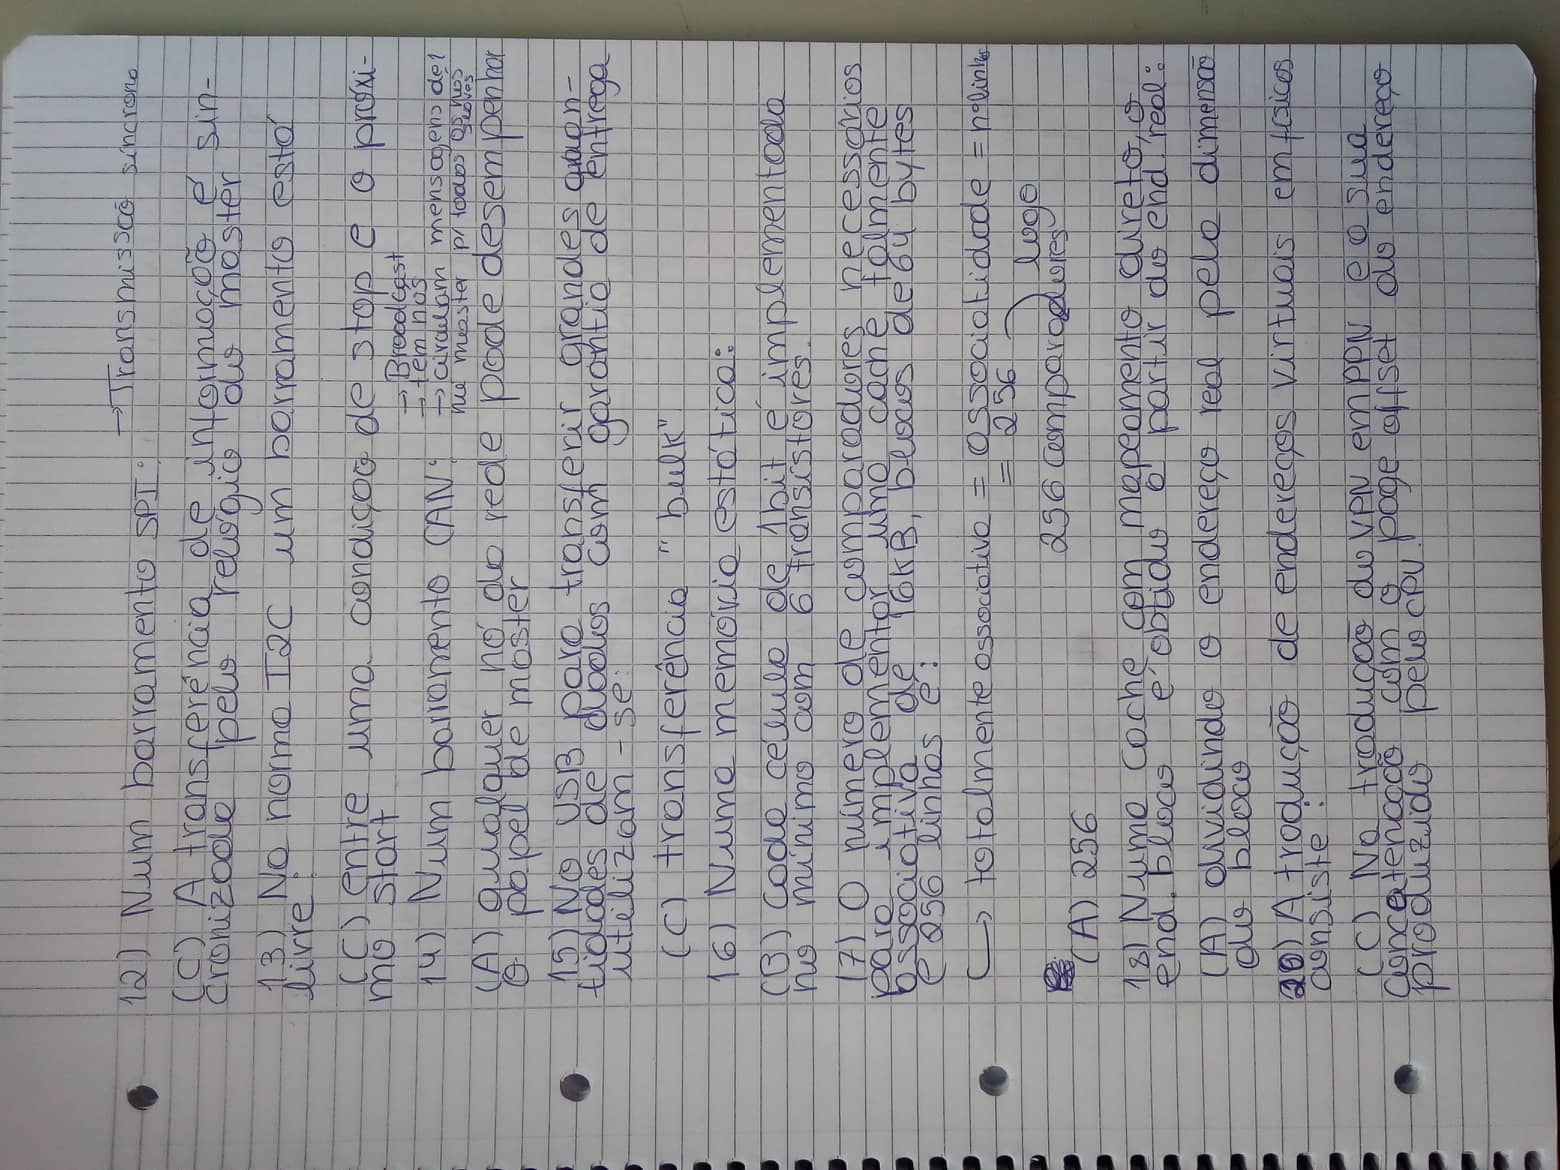 12) Num barramento SPI: →Transmissão síncrona
(C) A transferência de informação é sin-
cronizada pelo relógio do master
13) Na norma I2C um barramento está
livre:
(C) entre uma condição de stop e o próxi-
mo start
→ Broadcast
→ tem nós
14) Num barramento CAN: → circulam mensagens de 1
nu master p/ todos os nós
slaves
(A) qualquer nó da rede pode desempenhar
o papel de master
15) No USB para transferir grandes quan-
tidades de dados com garantia de entrega
utilizam-se:
(C) transferência "bulk"
16) Numa memória estática:
(B) Cada celula de 1bit é implementada
no mínimo com 6 transistores.
17) O número de comparadores necessários
para implementar uma cache talmente
associativa de 16kB, blocos de 64 bytes
e 256 linhas é:
↳ totalmente associativa = associatividade = nº linhas
= 256 ) logo
256 comparadores
(A) 256
18) Numa cache com mapeamento direto, o
end. bloco é obtido a partir do end. real:
(A) dividindo o endereço real pela dimensão
do bloco
20) A tradução de endereços virtuais em físicos
consiste:
(C) Na tradução do VPN em PPN e a sua
concatenação com o page offset do endereço
produzido pelo CPU.